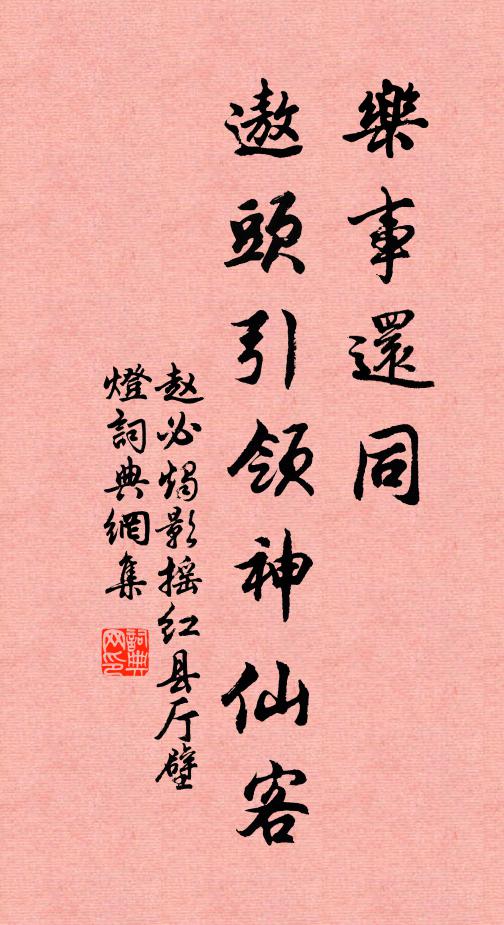 樂事還同
遨頭引領神仙客
赵必燭影摇红县厅壁
燈詞典網集
詞典网印